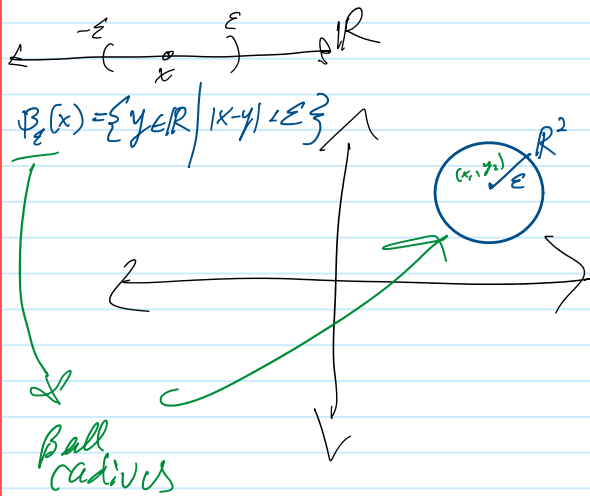 -ε ε ℝ
x
B_ε(x) = { y ∈ ℝ | |x-y| < ε }
ℝ²
(x₁, y₂)
ε
Ball
radius